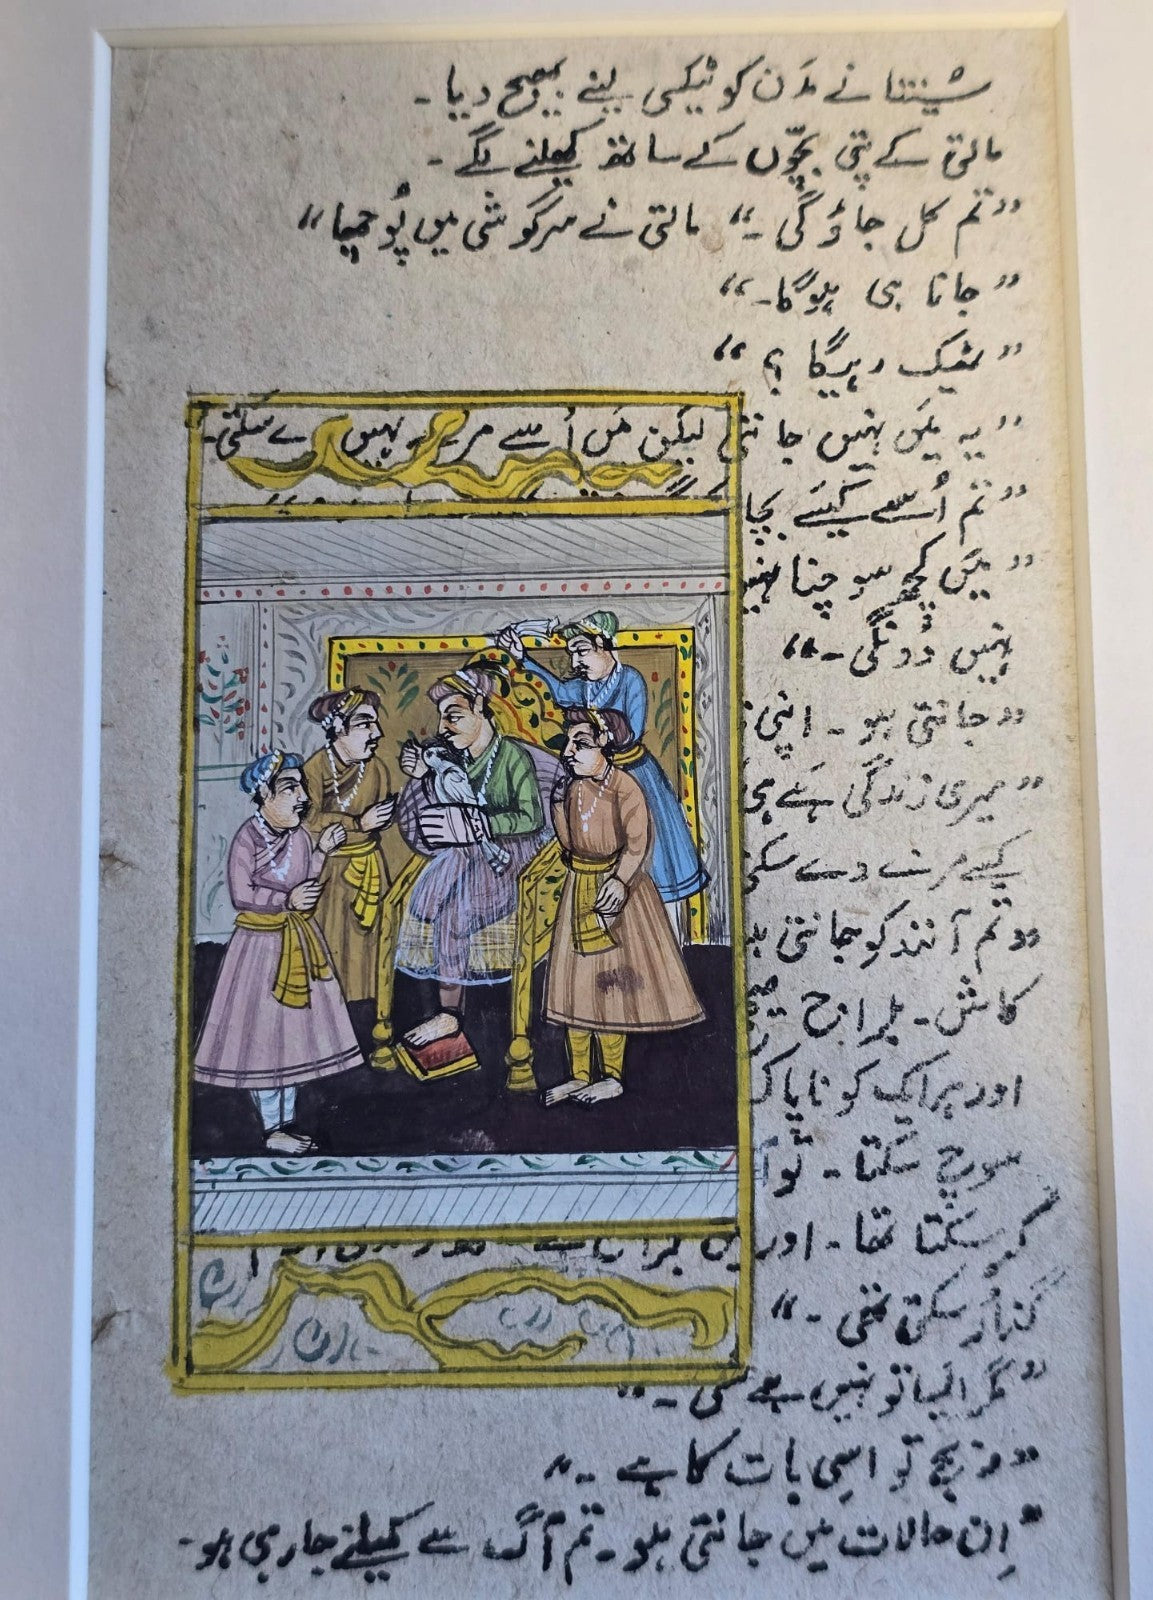 شینتا نے مَدَن کو ٹیکسی لینے بھیج دیا۔
مالتی کے پتی بچّوں کے ساتھ کھیلنے لگے۔
”تم کل جاؤ گی۔“ مالتی نے سرگوشی میں پُوچھا“
”جانا ہی ہوگا۔“
”ٹھیک رہیگا؟“
”یہ مَیں نہیں جانتی لیکن مَیں اُسے مرنے نہیں دے سکتی۔
”تم اُسے کیسے بچا
”مَیں کچھ سوچنا نہیں
نہیں دُونگی۔“
”جانتی ہو۔ اپنی
”میری زندگی ہے ہی
کیسے مرنے دے سکتی
”تم آنند کو جانتی ہو
کاش۔ بلراج
اور ہر ایک کو ناپاک
سوچ سکتا۔ تو
کر سکتا تھا۔ اور میں
سکتی تھی۔“
”مگر ایسا تو نہیں ہے
”رنج تو اسی بات کا ہے۔“
”اِن حالات میں جانتی ہو۔ تم آگ سے کھیلنے جا رہی ہو۔